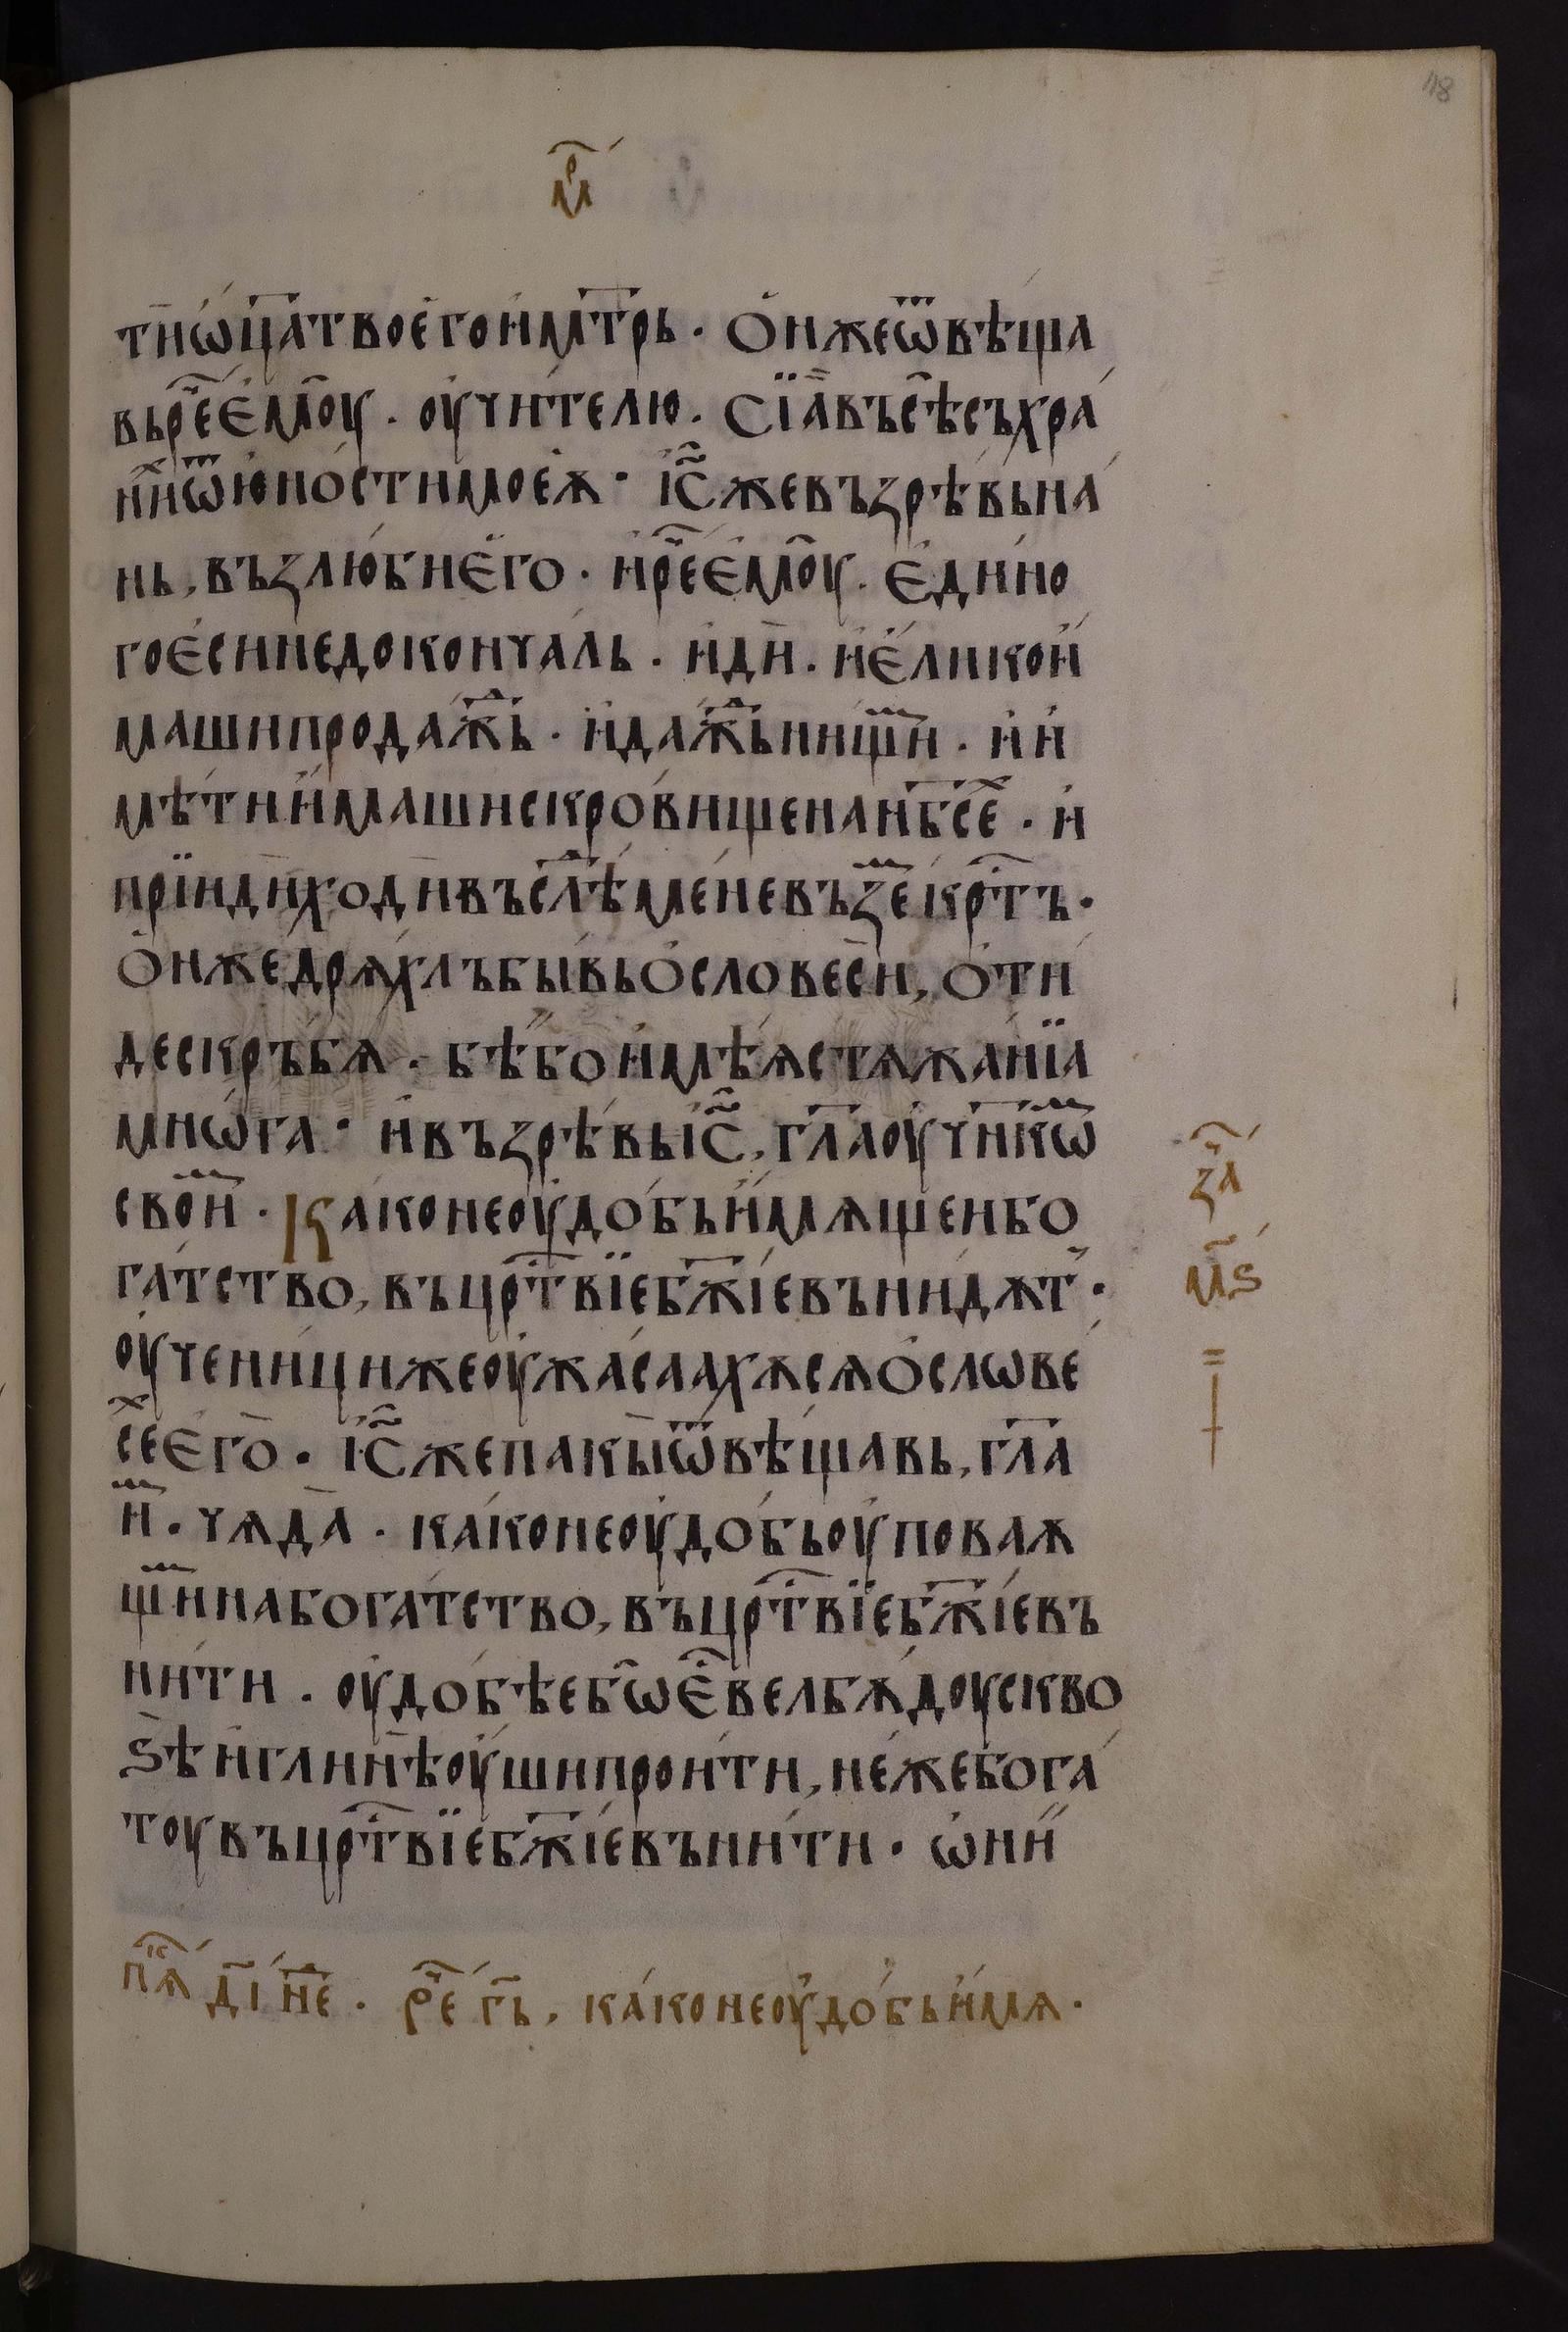 118
мр҃
тиѡ҆ц҃атвоего҆и҆мт҃рь · ѻ҆нжеѿвѣща
вьре҃є҆моу · оу҆чи́телю · сїа̀въсѣ̀съхра
нⷯиѿю҆но́стимоеѫ̀ · і҆с҃жевъзрѣ́вьна
нь, възлю́биє҆го · и҆ре҃є҆моу · є҆ди́но
гоє҆синедоконча́ль · и҆дѝ · и҆є҆ликои҆
машипродаж̾ь · и҆даж̾ьнищⷨи · и҆и
мѣ́тии҆машискро́вищенанб҃сеⷯ · и҆
прїидѝходѝвъслⷣѣме́невъзеⷨкрⷭ҇тъ ·
ѻ҆нжедрѧ́хлъбы́вьѻ҆словесѝ, ѻ҆ти
дескръ́бѧ · бѣ́бои҆мѣ́ѧстѧжа́нїа
мнѡ́га · и҆възрѣ́вьі҆с҃, гл҃аоу҆чнкѡⷨ
свои҆ⷨ · ка́конеоу҆до́бьи҆мѧщеибо
га́тство, въцрⷭ҇твїебж҃їевъни́дѫтⸯ ·
оу҆чени́цижеоу҆жа́саахѫсѧѻ҆слѡве
сеⷯє҆го̀ · і҆с҃жепакы̀ѿвѣ́щавь, гл҃а
иⷨ · чѧ́да̀ · ка́конеоу҆до́бьоу҆поваѫ
щⷨинабога́тство, въцрⷭ҇твїебж҃їевъ
ни́ти · оу҆до́бѣебѡ҆є҆ⷭ҇велбѫ́доускво
ѕѣ̀и҆глинѣ̀оу҆шипрои́ти, не́жебога
тоувъцрⷭ҇твїебж҃їевъни́ти · ѡ҆нии҆
за҃ⷱ
м҃ѕ
пⷭ҇ѧ д҃і неⷣ · реⷱ г҃ь, ка́конеоу҆до́бьи҆мѧ ·